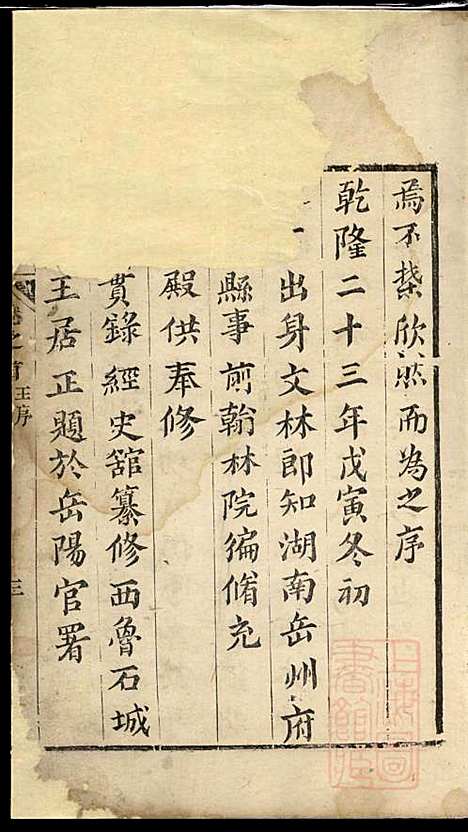 焉不禁欣然而為之序
乾隆二十三年戊寅冬初
出身文林郎知湖南岳州府
縣事前翰林院編修充
殿供奉修
貫錄經史館纂修西魯石城
王居正題於岳陽官署
卷之首 王序 三
上海圖書館藏